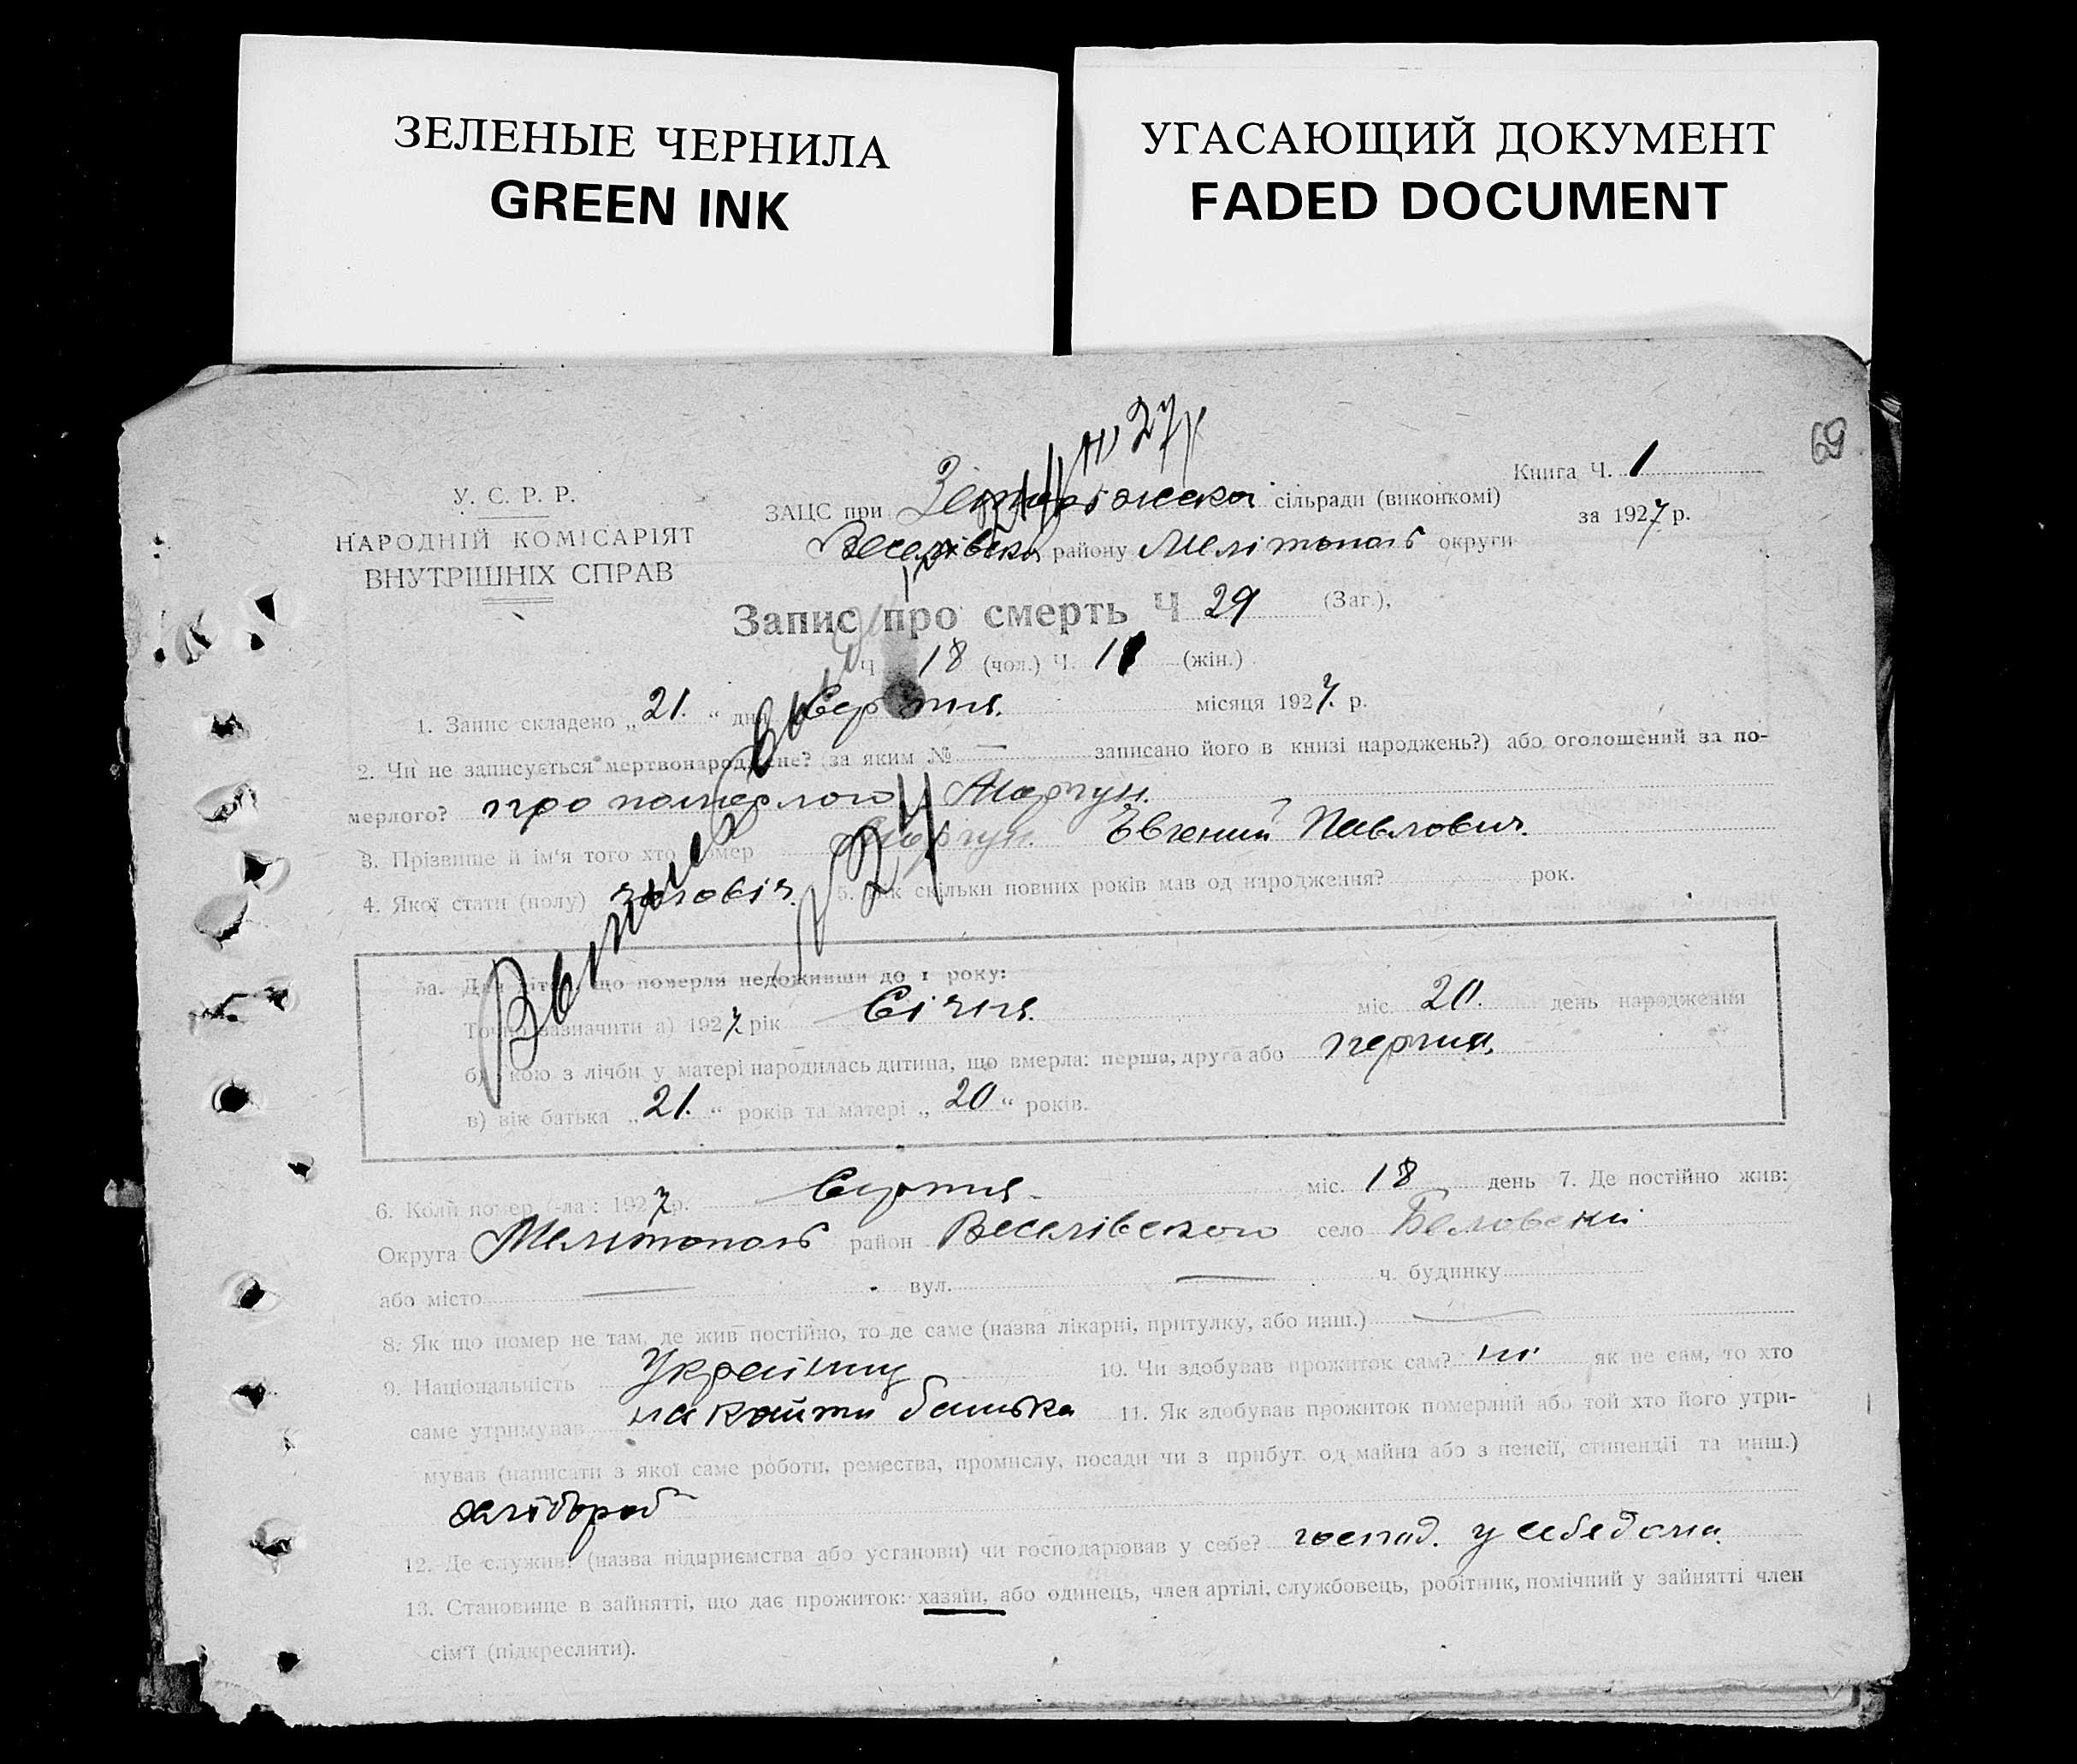 ЗЕЛЕНЫЕ ЧЕРНИЛА
GREEN INK
УГАСАЮЩИЙ ДОКУМЕНТ
FADED DOCUMENT
69
Книга Ч. 1
за 1927 р.
У. С. Р. Р.
НАРОДНІЙ КОМІСАРІЯТ
ВНУТРІШНІХ СПРАВ
ЗАЦС при сільради (виконкомі)
Веселівськ району Мелітополь округи
Запис про смерть Ч 29 (Заг.),
Ч 18 (чол.) Ч. 11 (жін.)
1. Запис складено „21.“ дня Серпня. місяця 1927 р.
2. Чи не записується мертвонароджене? (за яким № — записано його в книзі народжень?) або оголошений за по-
мерлого? про померлого Моргун.
3. Прізвище й ім'я того хто помер Моргун. Євгений Павлович.
4. Якої стати (полу) чоловіч. 5. Вік скільки повних років мав од народження? рок.
5а. Для дітей, що померли недоживши до 1 року:
Точно зазначити а) 1927 рік Січня. міс. 20. день народження
б) якою з лічби у матері народилась дитина, що вмерла: перша, друга або перша
в) вік батька „21.“ років та матері „20“ років.
6. Коли помер (-ла): 1927 р. Серпня міс. 18 день 7. Де постійно жив:
Округа Мелітополь район Веселівського село
або місто — вул. — ч. будинку
8. Як що помер не там, де жив постійно, то де саме (назва лікарні, притулку, або инш.) —
9. Національність Українец 10. Чи здобував прожиток сам? ні як не сам, то хто
саме утримував на кошти батька 11. Як здобував прожиток померлий або той хто його утри-
мував (написати з якої саме роботи, ремества, промислу, посади чи з прибут. од майна або з пенсії, стипендії та инш.)
хлібороб
12. Де служив? (назва підприємства або установи) чи господарював у себе? господ. у себе дома.
13. Становище в зайнятті, що дає прожиток: хазяїн, або одинець, член артілі, службовець, робітник, помічний у зайнятті член
сім'ї (підкреслити).